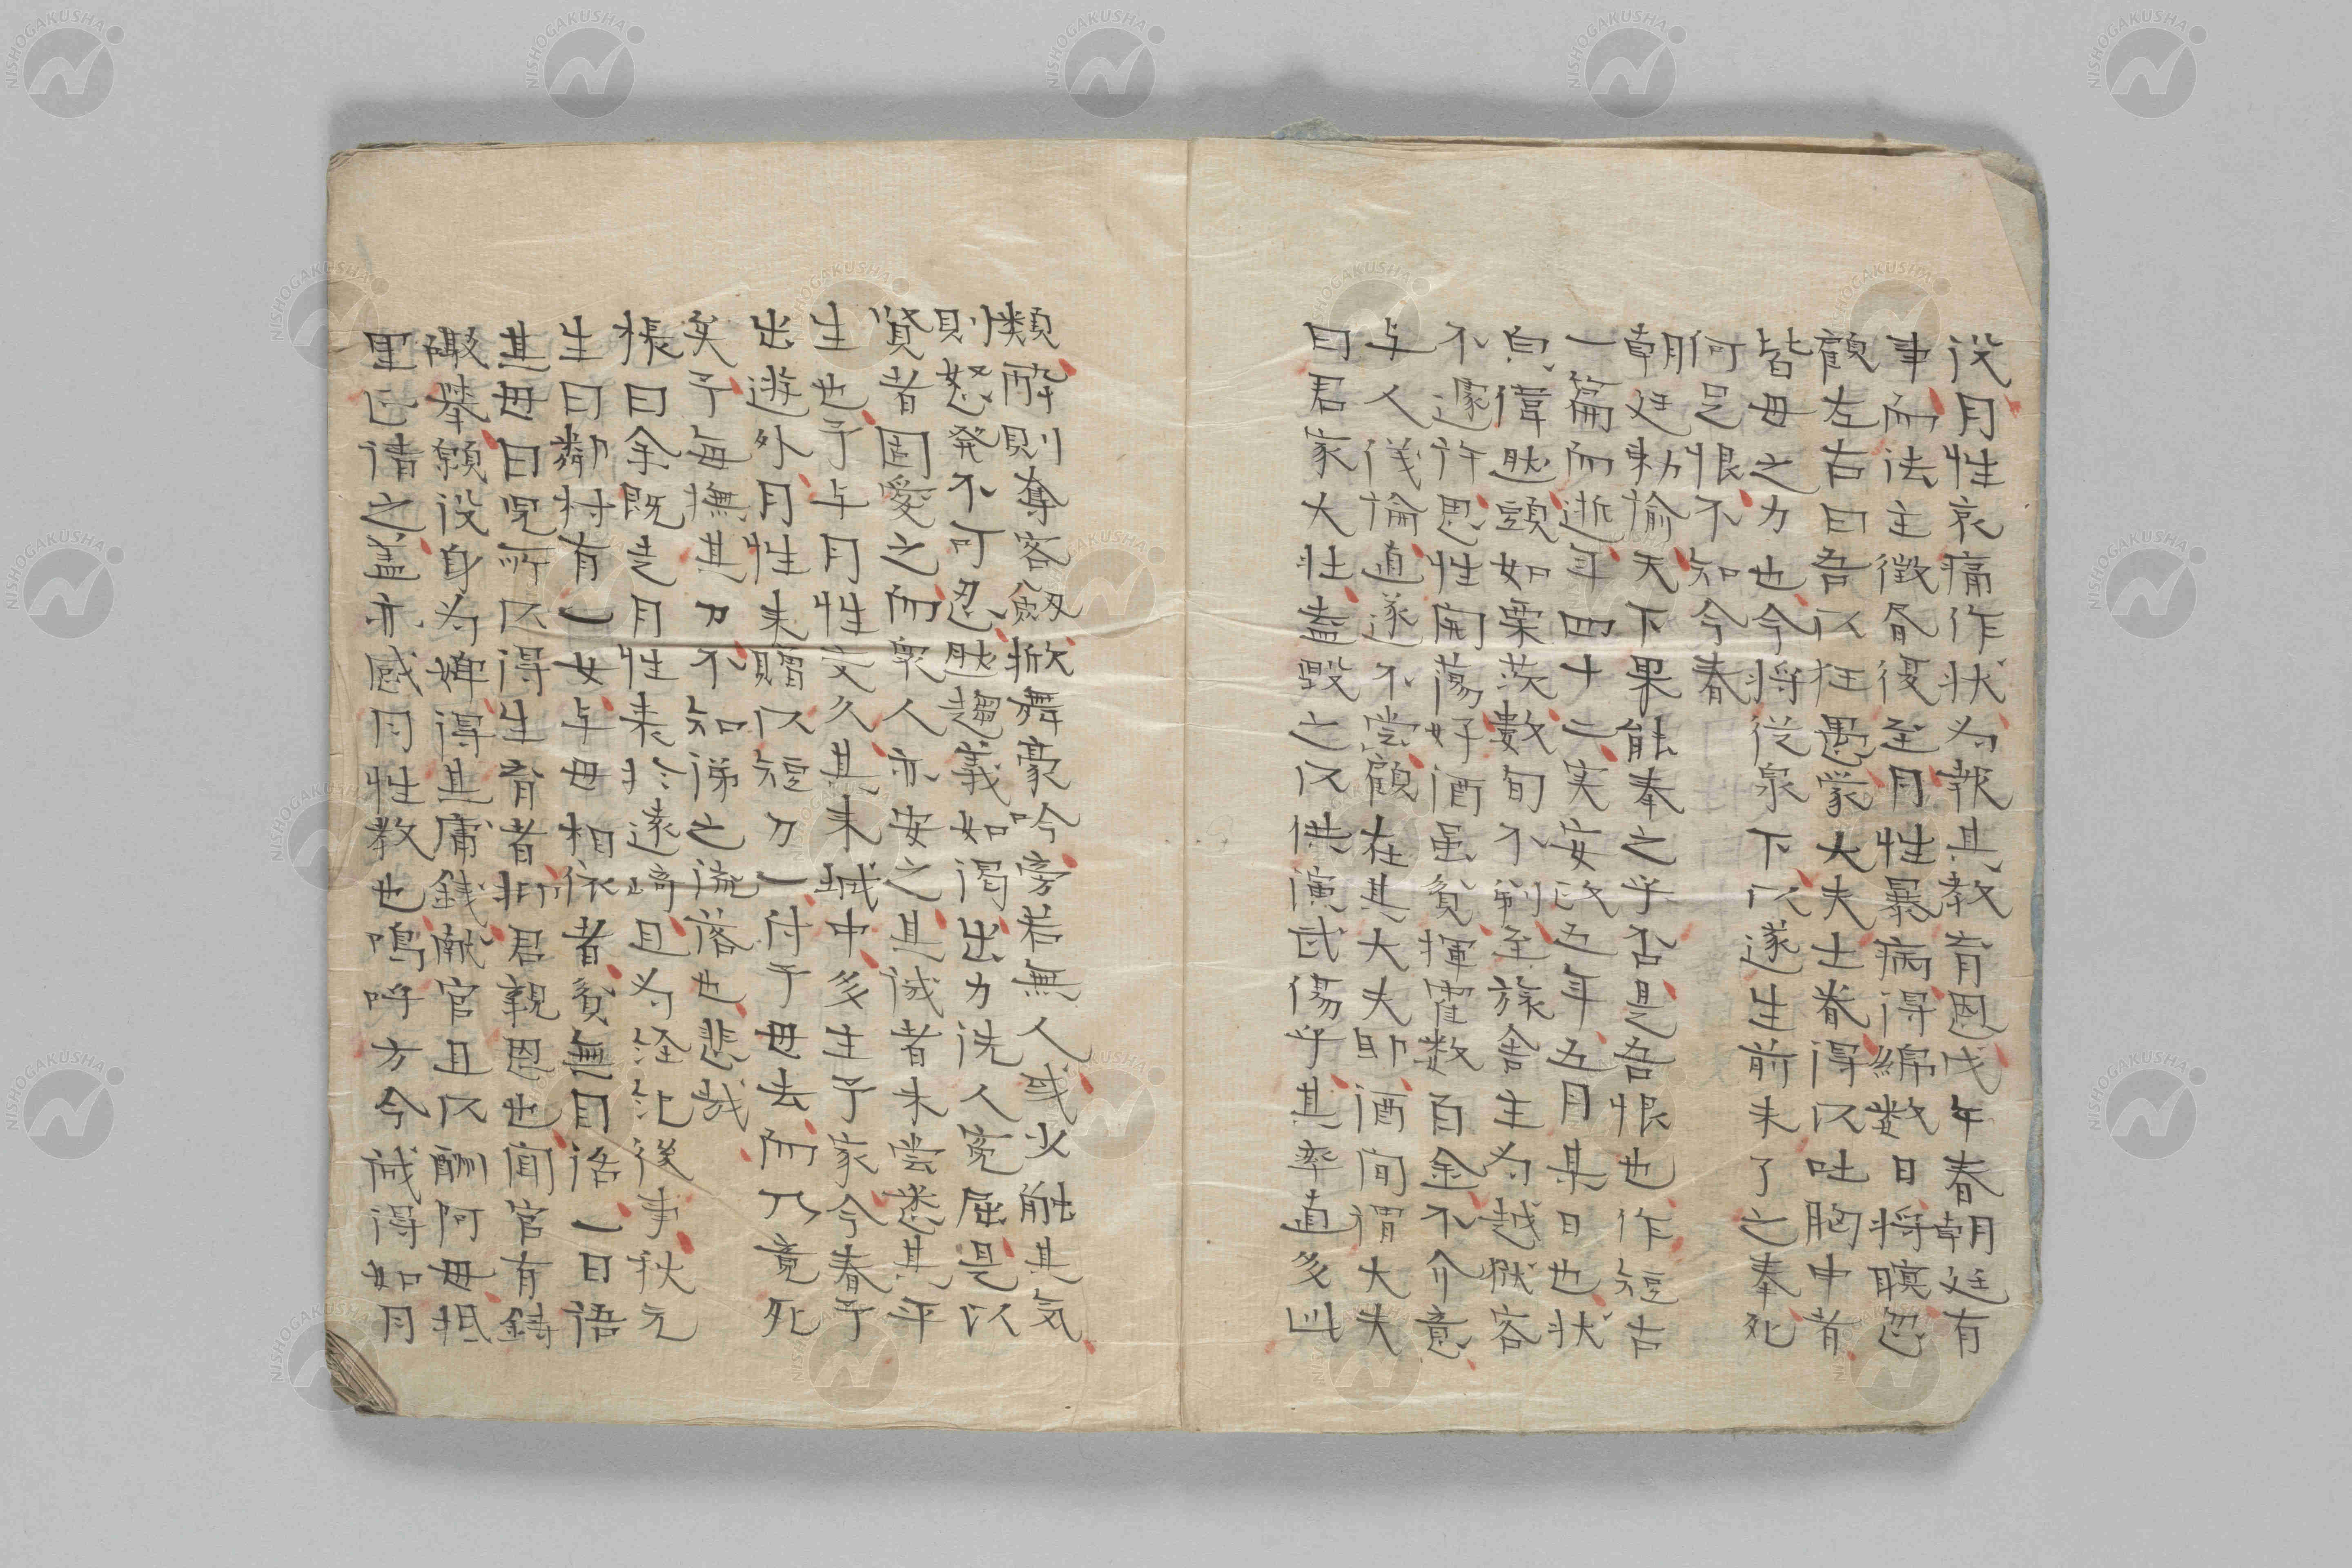 没月性哀痛作状為報其教育恩戊午春朝廷有
事而法主徴督復至月性暴病得綿数日将瞑忽
顧左右曰吾以狂愚蒙大夫士眷得以吐胸中者
皆母之力也今将従泉下以遂生前未了之奉死
何足恨不知今春
朝廷勅愉天下果能奉之乎否是吾恨也作短古
一篇而逝年四十二実安政五年五月某日也状
皃偉然頭如栗茨数旬不剃至旅舎主為越獄客
不遽許思性開蕩好酒虽貧揮霍数百金不介意
与人議論道遂不尝顧在其大夫即酒間謂大夫
曰君家大壮盍毀之以供演武場乎其率直多此
類酔則奪客劔掀舞豪吟旁若無人或火触其気
則怒発不可忍然趨義如渇出力洗人寃屈是以
貧者固愛之而衆人亦安之其誠者未尝悉其平
生也予与月性交久其来城中多主予家今春予
出遊外月性来贈以短刀一付予母去而乃竟死
矣予毎撫其刀不知涕之流落也悲哉
樵曰余既走月性表於遠崎且為経紀後事秋元
生曰鄰村有一女与母相依者貧無目活一日語
其母曰児所以得生育者抑君親恩也聞官有鋳
礟挙願没身為婢得其庸銭献官且以酬阿母抵
里正請之盖亦感月性教也嗚呼方今誠得如月